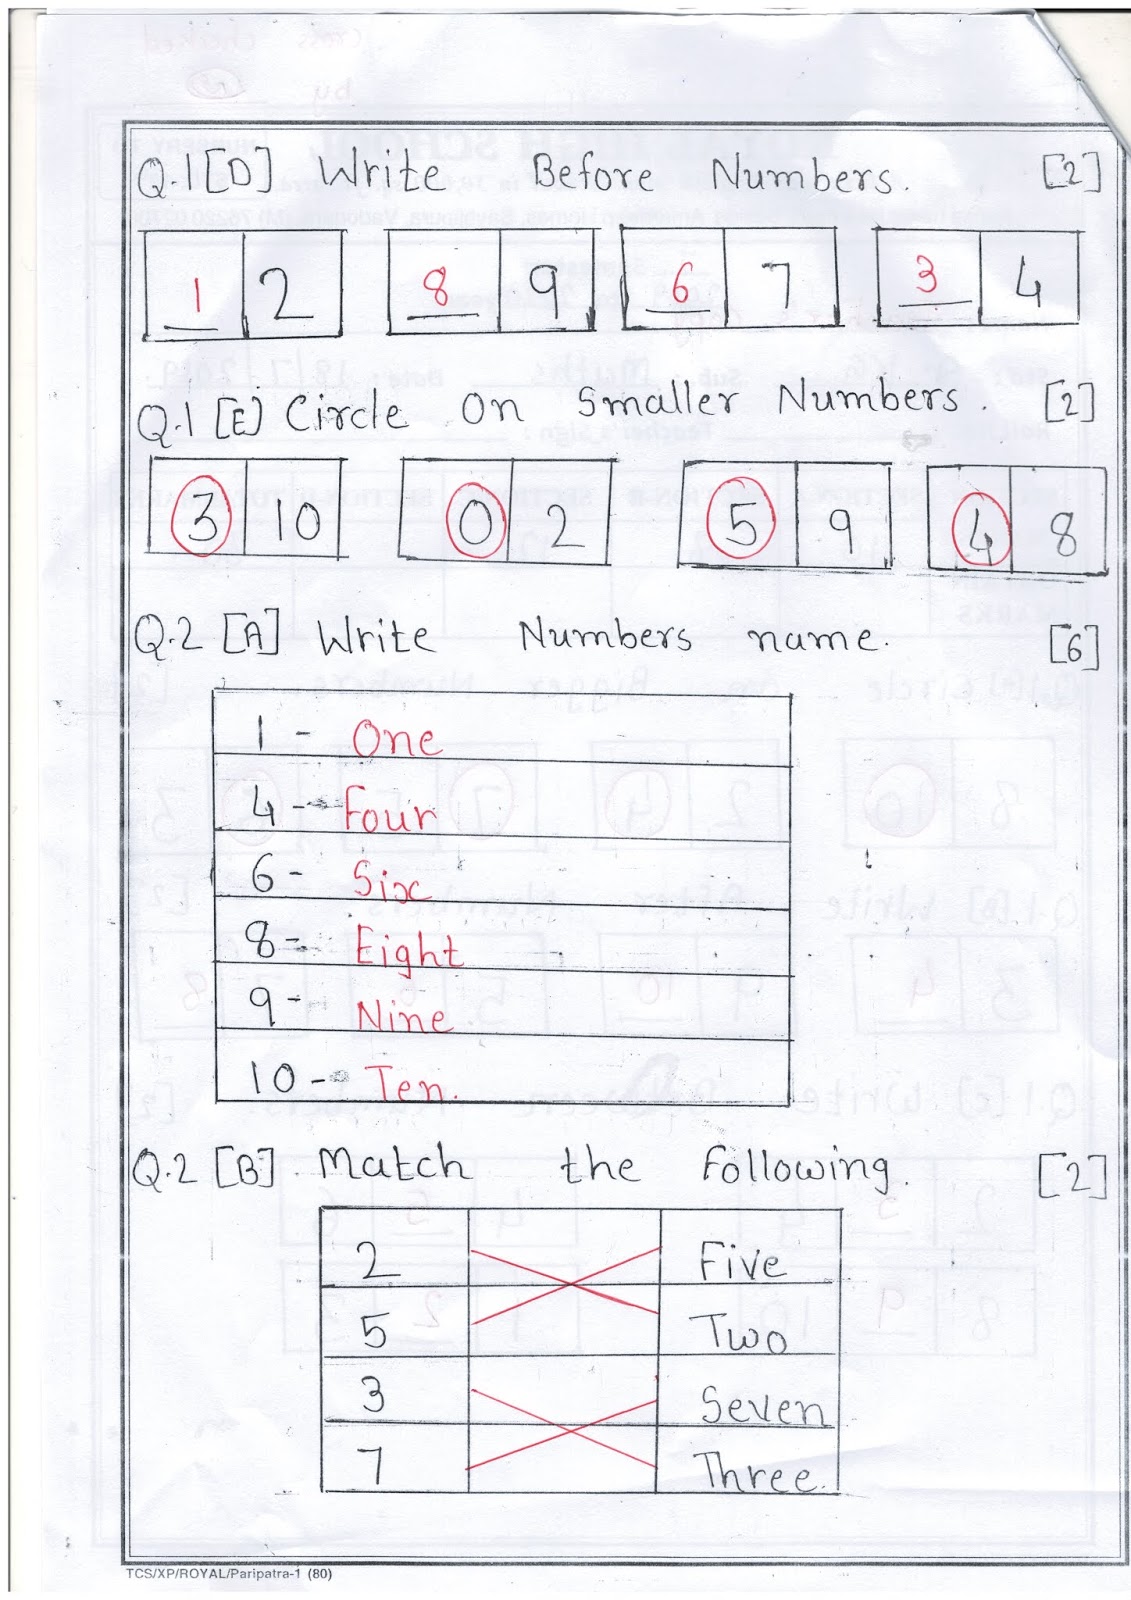 Q.1 [D] Write Before Numbers. [2]
1 2 8 9 6 7 3 4
Q.1 [E] Circle On Smaller Numbers. [2]
3 10 0 2 5 9 4 8
Q.2 [A] Write Numbers name. [6]
1 - One
4 - Four
6 - Six
8 - Eight
9 - Nine
10 - Ten.
Q.2 [B]. Match the following. [2]
2 Five
5 Two
3 Seven
7 Three.
TCS/XP/ROYAL/Paripatra-1 (80)